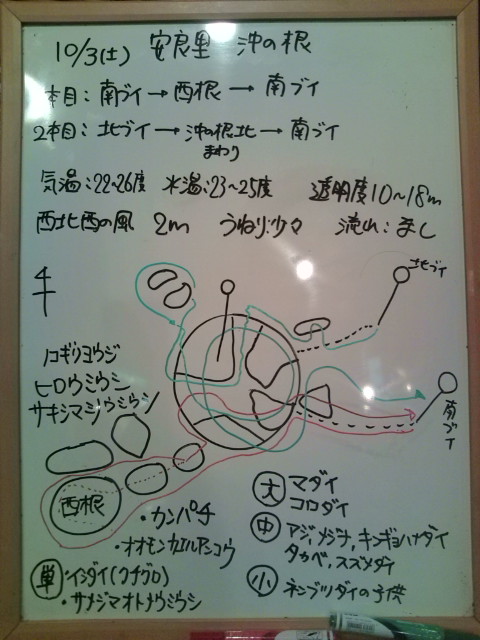 10/3(土) 安良里 沖の根
本目:南ブイ→西根→南ブイ
2本目:北ブイ→沖の根北→南ブイ
まわり
気温:22~26度 水温:23~25度 透明度10~18m
西北西の風 2m うねり:少々 流れ:まし
北ブイ
南ブイ
ノコギリヨウジ
ヒロウミウシ
サキシマジウミウシ
西根
・カンパチ
・オオモンカエルアンコウ
大 マダイ
コロダイ
中 アジ,メジナ,キンギョハナダイ
タカベ,スズメダイ
小 ネンブツダイの子供
単 ・イシダイ(クチグロ)
・サメジマオトメウミウシ